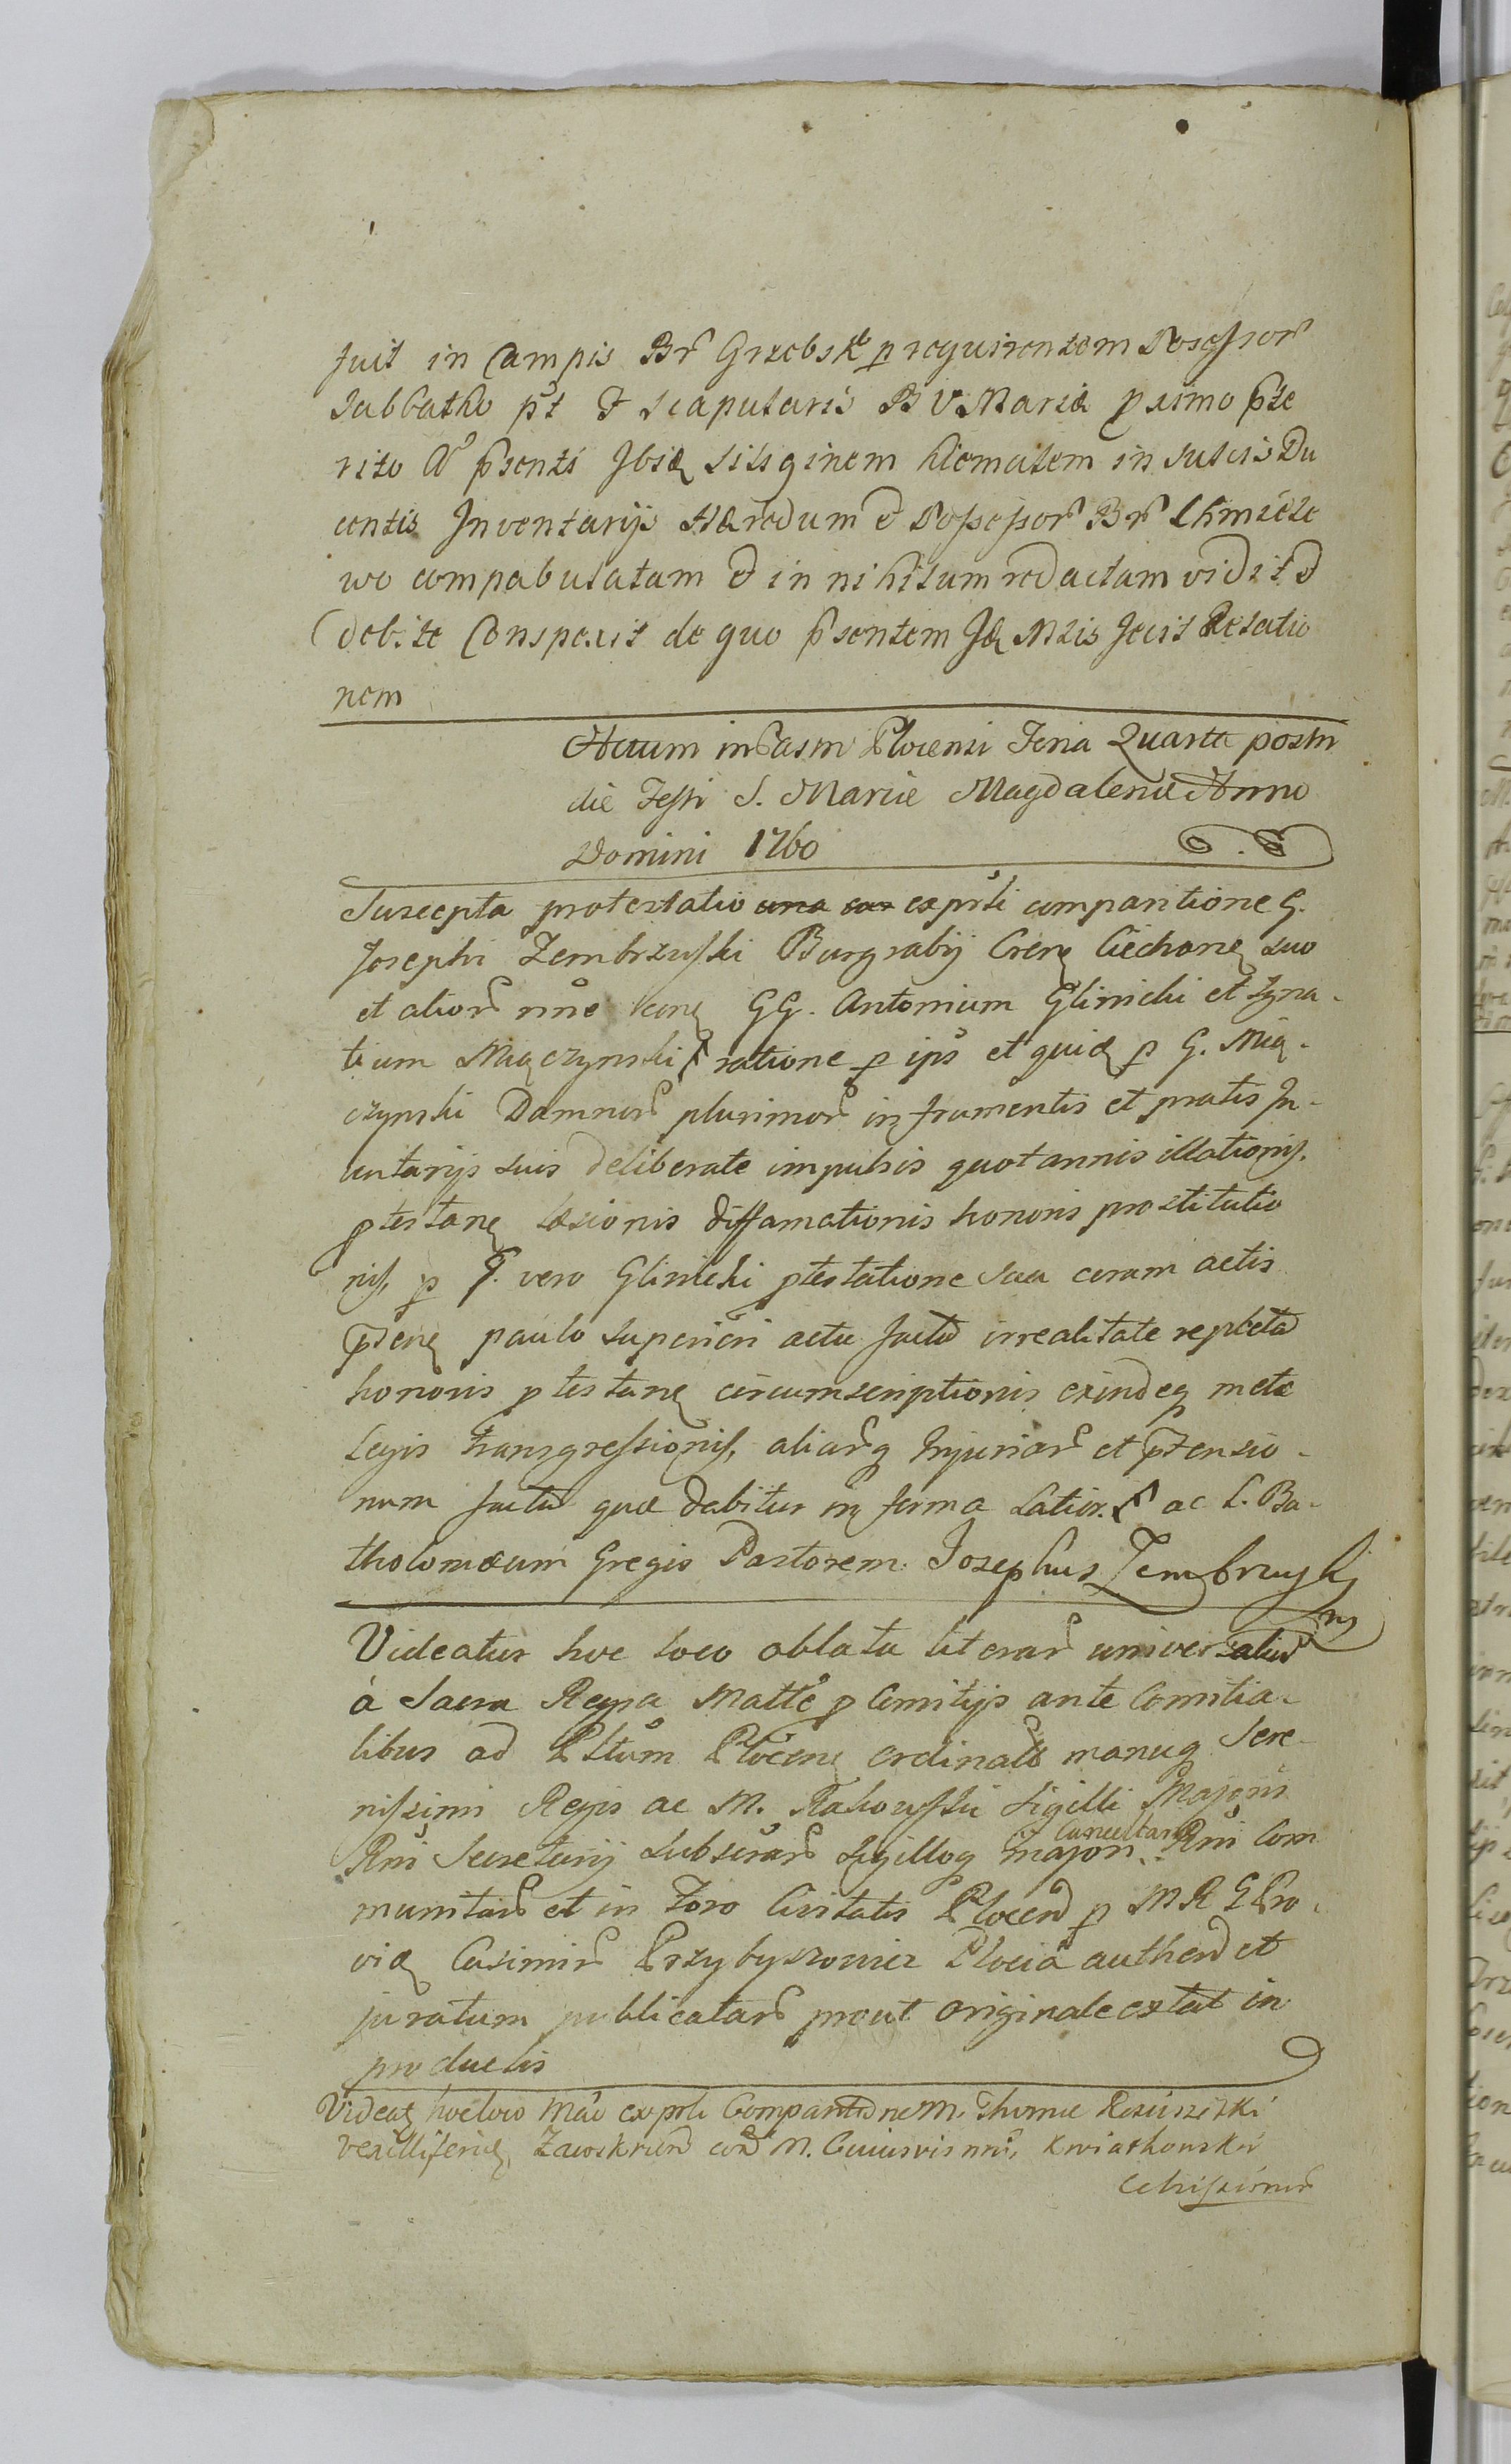 fuit in Campis Br Grzebsk p requirentem Possessor
Sabbatho pt F Scapularis B V Mariæ pximo pte
rito A psenti Ibiq Siliginem hiematem in sulcis Du
centis Inventarijs Hæredum & Possessor Br Chmiele
wo compabulatam & in nihilum redactam vidit &
debite Conspexit de quo psentem Id Mris fecit Relatio
nem
Actum in Castri Plocensi Feria Quarta postri
die Festi S. Mariæ Magdalenæ Anno
Domini 1760
Suscepta protestatio una cum ex psti comparitione G.
Josephi Zembrzuski Burgrabij Cren Ciechan suo
et alior nne con GG. Antonium Glinicki et Igna-
tium Miączynski ratione p ips et quid p G. Mią-
czynski Damnor plurimor in frumentis et pratis In-
ventarijs suis deliberate impulsis quotannis illationis,
ptestan læsionis diffamationis honoris prostitutio
nis, p G. vero Glinicki ptestatione sua coram actis
pten paulo superiori actu facta irrealitate repleta
honoris ptestan circumscriptionis exindeq metæ
Legis transgressionis, aliarq Injuriar et ptensio-
num facta quæ dabitur in forma Latior. ac L. Ba-
tholomæum Gregis Pastorem. Josephus Zembrzuski
mp
Videatur hoc loco oblata literar universaliu
à Sacra Regia Matte p Comitijs ante Comitia-
libus ad Pltum Plocen ordinata manuq Sere-
nissimi Regis ac M. Rakowski Sigilli Majoris
Cancellar
Rni Secretarij subscrar Sigilloq major Rni Com
munitar et in Foro Civitatis Plocen p M R G Pro-
vid Casimir Przybyszowicz Plocia authen et
juratum publicatar prout originale extat in
productis
Videat hoc loco Man ex psti Comparitione M. Thomæ
vexilliferid, Zawskrien con M. Cuiusvis nris, Kwiatkowski